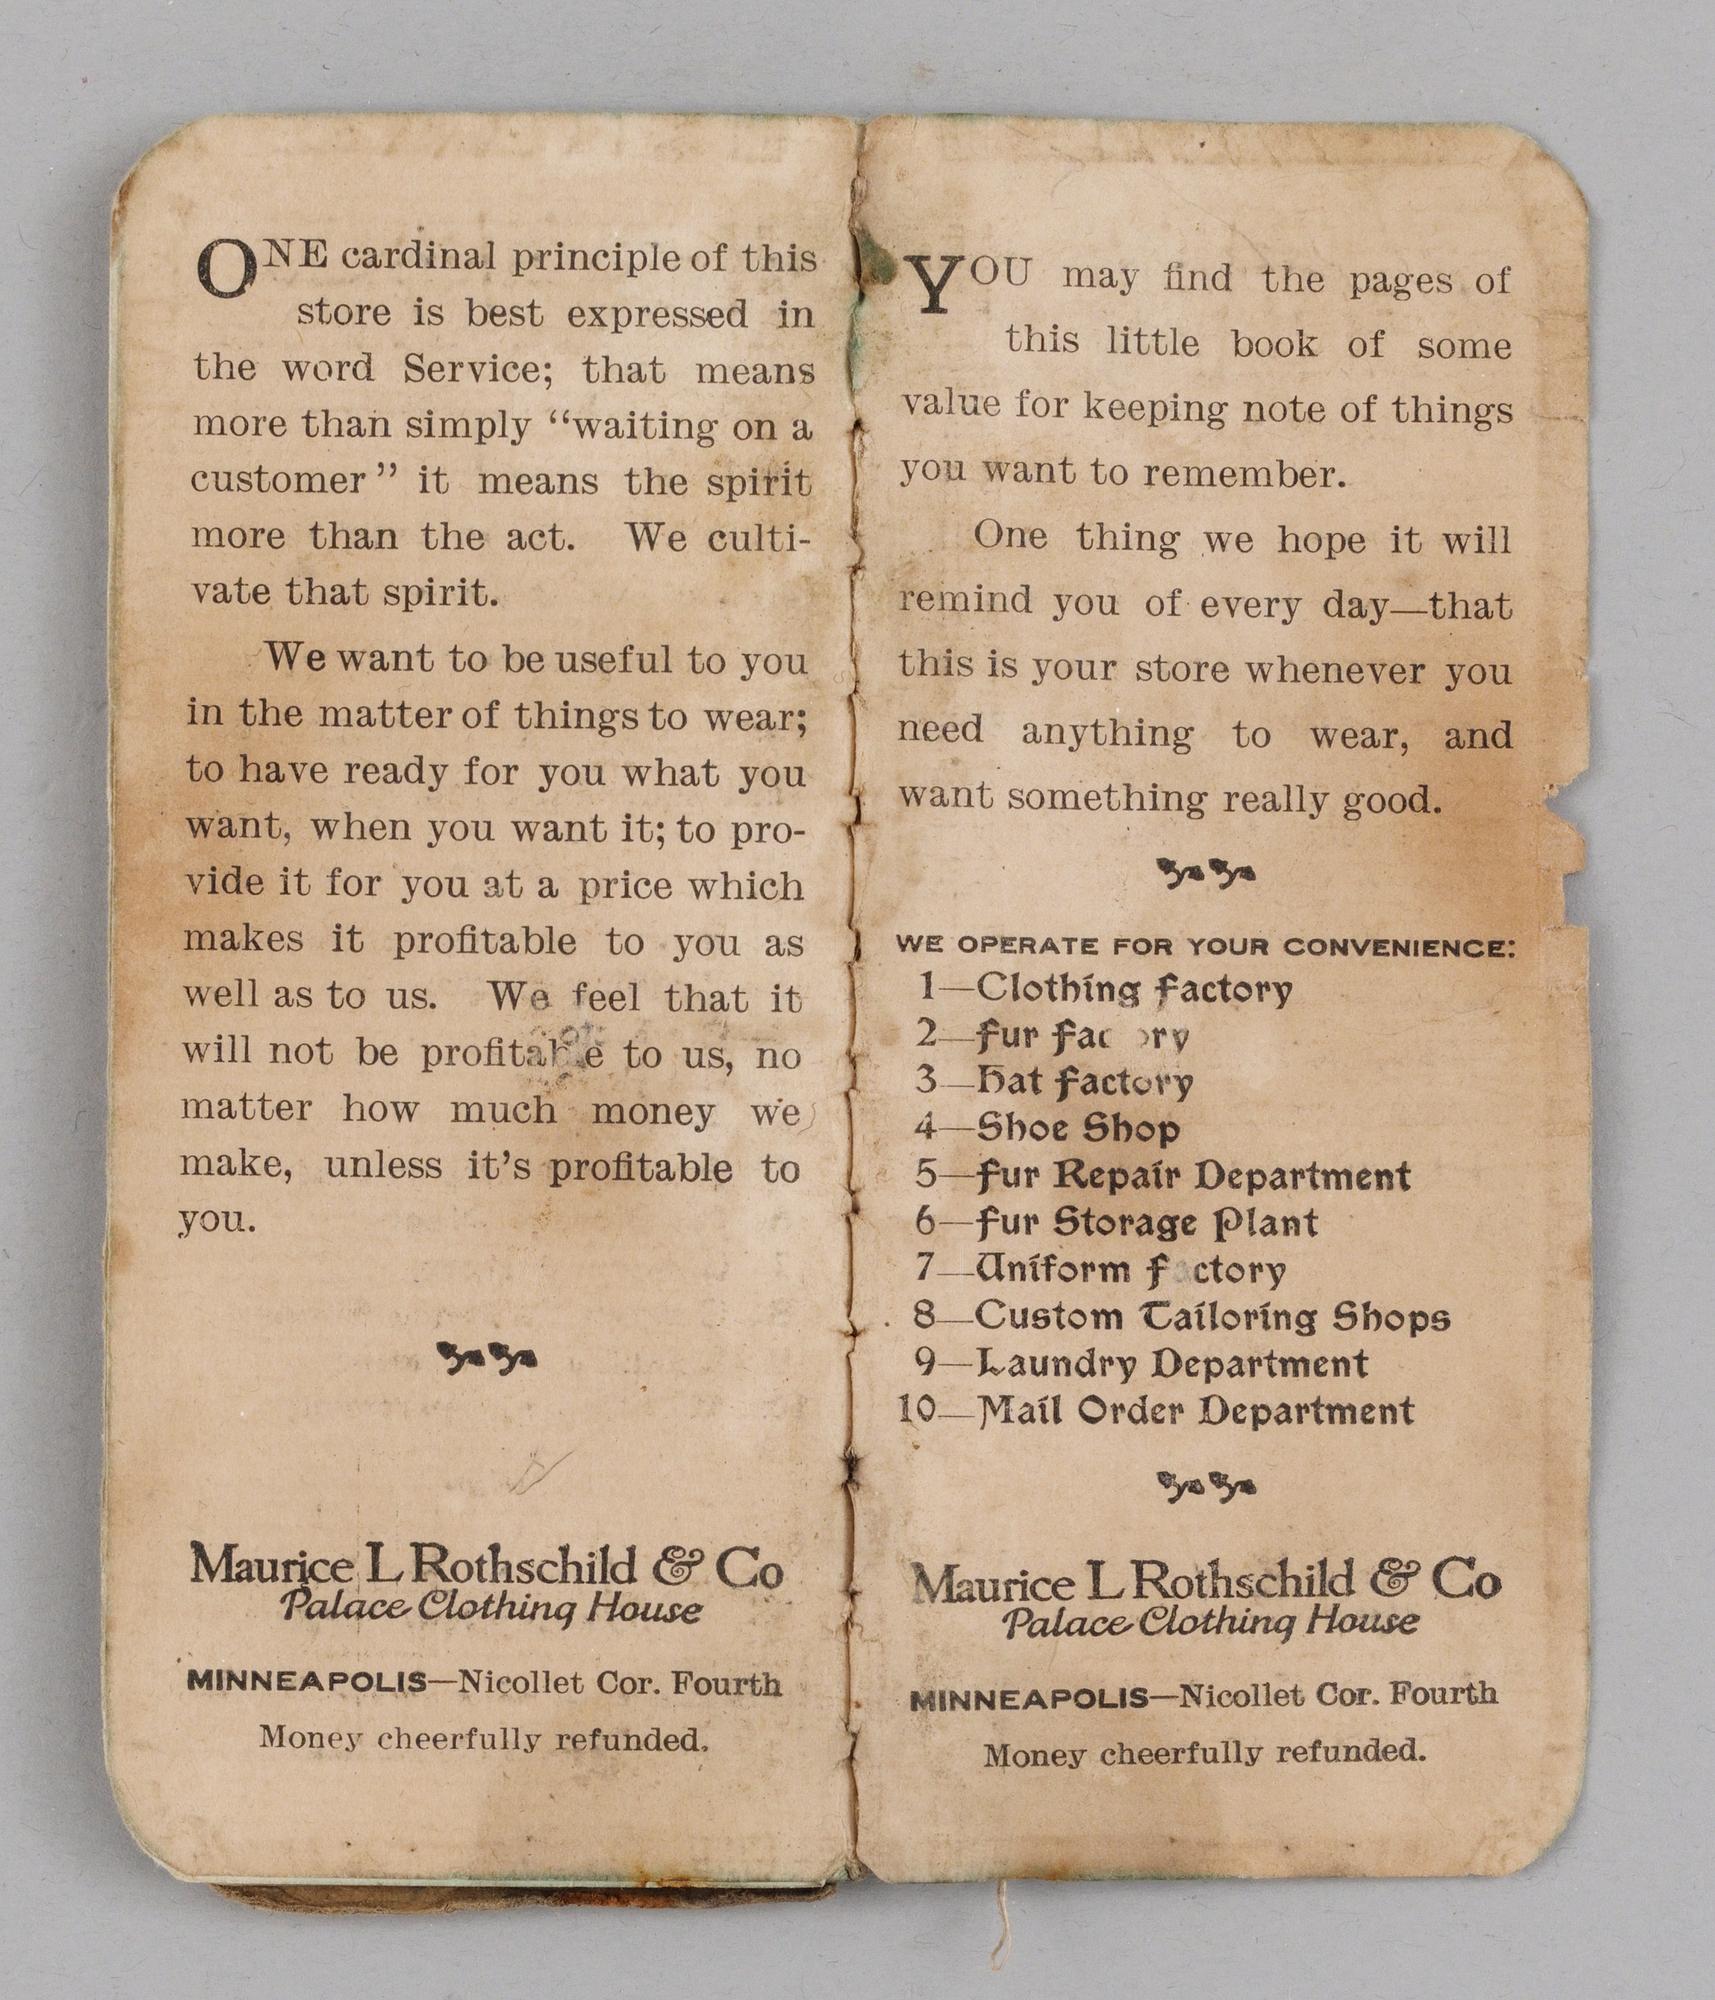 ONE cardinal principle of this
store is best expressed in
the word Service; that means
more than simply “waiting on a
customer” it means the spirit
more than the act. We culti-
vate that spirit.
We want to be useful to you
in the matter of things to wear;
to have ready for you what you
want, when you want it; to pro-
vide it for you at a price which
makes it profitable to you as
well as to us. We feel that it
will not be profitable to us, no
matter how much money we
make, unless it’s profitable to
you.
Maurice L Rothschild & Co
Palace Clothing House
MINNEAPOLIS—Nicollet Cor. Fourth
Money cheerfully refunded.
YOU may find the pages of
this little book of some
value for keeping note of things
you want to remember.
One thing we hope it will
remind you of every day—that
this is your store whenever you
need anything to wear, and
want something really good.
WE OPERATE FOR YOUR CONVENIENCE:
1—Clothing Factory
2—Fur Factory
3—Hat Factory
4—Shoe Shop
5—Fur Repair Department
6—Fur Storage Plant
7—Uniform Factory
8—Custom Tailoring Shops
9—Laundry Department
10—Mail Order Department
Maurice L Rothschild & Co
Palace Clothing House
MINNEAPOLIS—Nicollet Cor. Fourth
Money cheerfully refunded.